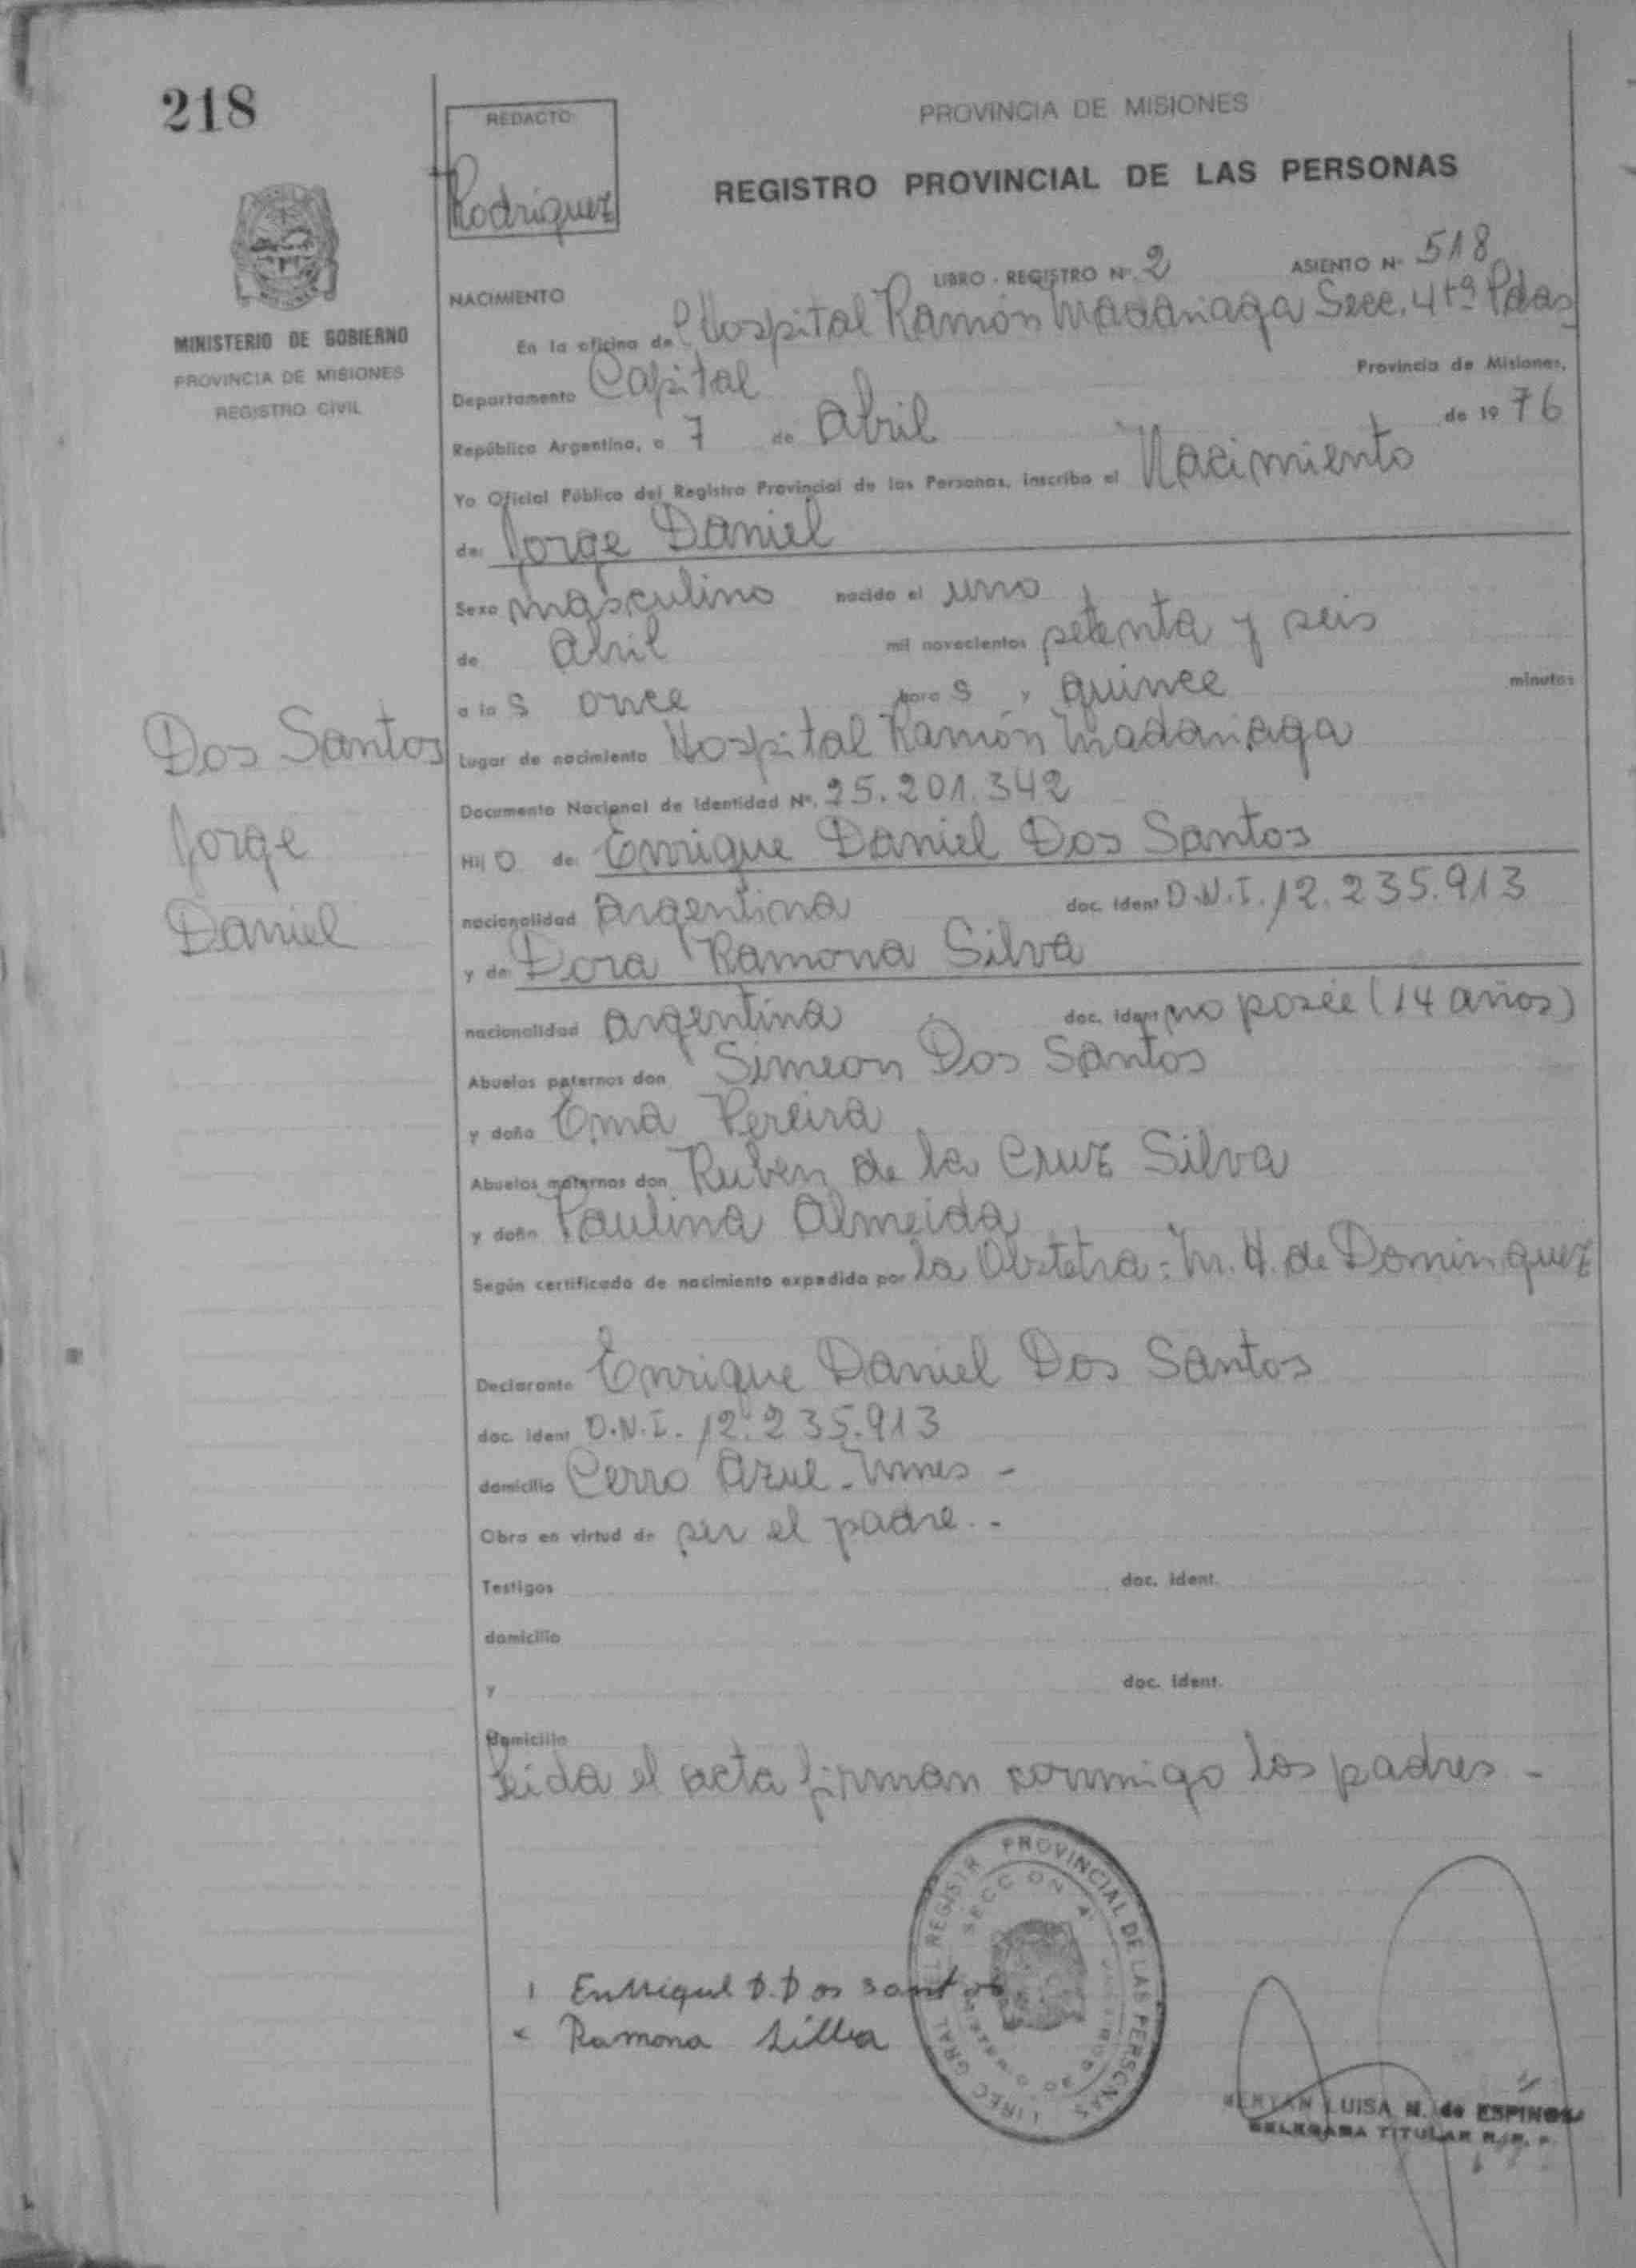 218
REDACTO
Rodriguez
PROVINCIA DE MISIONES
REGISTRO PROVINCIAL DE LAS PERSONAS
MINISTERIO DE GOBIERNO
PROVINCIA DE MISIONES
REGISTRO CIVIL
LIBRO - REGISTRO Nº 2 ASIENTO Nº 518
NACIMIENTO
En la oficina del Hospital Ramón Madariaga Secc. 4ta Pdas
Departamento Capital Provincia de Misiones,
República Argentina, a 7 de Abril de 1976
Yo Oficial Público del Registro Provincial de las Personas, inscribo el Nacimiento
de: Jorge Daniel
Sexo masculino nacido el uno
de Abril mil novecientos setenta y seis
a las once horas y quince minutos
Lugar de nacimiento Hospital Ramón Madariaga
Documento Nacional de Identidad Nº. 25.201.342
Hijo de: Enrique Daniel Dos Santos
nacionalidad Argentina doc. ident D.N.I. 12.235.913
y de: Dora Ramona Silva
nacionalidad argentina doc. ident no posée (14 años)
Abuelos paternos don Simeon Dos Santos
y doña Ema Pereira
Abuelos maternos don Ruben de la Cruz Silva
y doña Paulina Almeida
Según certificado de nacimiento expedido por la Obstetra: M. H. de Dominguez
Declarante Enrique Daniel Dos Santos
doc. ident D.N.I. 12.235.913
domicilio Cerro Azul - Mnes -
Obra en virtud de ser el padre. -
Testigos doc. ident.
domicilio
y doc. ident.
domicilio
Leida el acta firman conmigo los padres -
Dos Santos
Jorge
Daniel
Enrique D. Dos Santos
Ramona Silva
REGISTR PROVINCIAL DE LAS PERSONAS
SECCION 4
LUISA N. de ESPINOSA
DELEGADA TITULAR R.P.P.